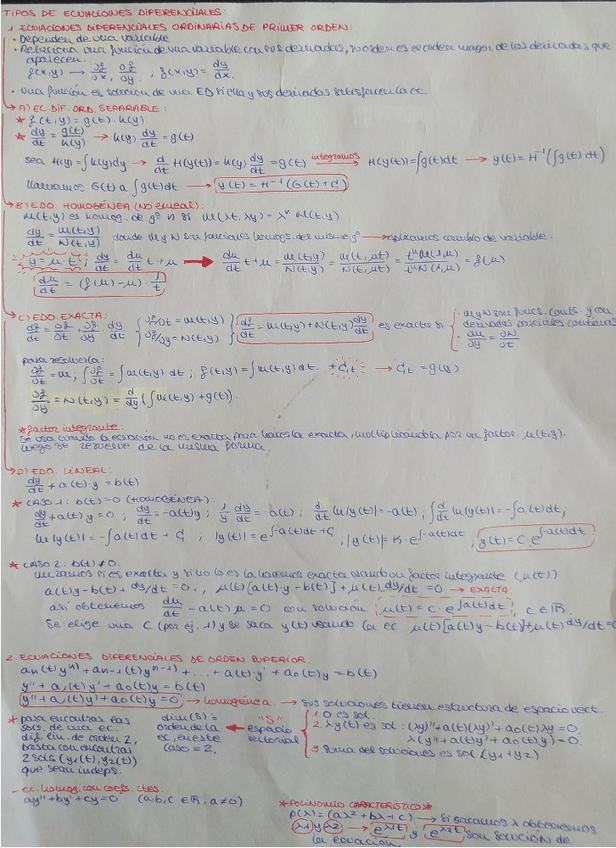 TIPOS DE ECUACIONES DIFERENCIALES:
1. ECUACIONES DIFERENCIALES ORDINARIAS DE PRIMER ORDEN:
· Dependen de una variable
· Relaciona una función de una variable con sus derivadas, su orden es el orden mayor de las derivadas que
aparecen.
f(x,y) → ∂f/∂x, ∂f/∂y ; f(x,y) = dy/dx.
· Una función es solución de una ED si ella y sus derivadas satisfacen la ec.
→ A) EC. DIF. ORD. SEPARABLE:
* f(t,y) = g(t)·h(y)
* dy/dt = g(t)/h(y) → h(y) dy/dt = g(t)
sea H(y) = ∫h(y)dy → d/dt H(y(t)) = h(y) dy/dt = g(t) integramos → H(y(t)) = ∫g(t)dt → y(t) = H⁻¹(∫g(t)dt)
llamamos G(t) a ∫g(t)dt → y(t) = H⁻¹(G(t) + C)
→ B) EDO. HOMOGÉNEA (NO lineal):
M(t,y) es homog. de gº n si M(λt, λy) = λⁿ M(t,y)
dy/dt = M(t,y)/N(t,y) donde M y N son funciones homogs. del mismo gº → aplicamos cambio de variable.
y = μ·t ; dy/dt = dμ/dt t + μ → dμ/dt t + μ = M(t,y)/N(t,y) = M(t,μt)/N(t,μt) = tⁿM(1,μ)/tⁿN(1,μ) = f(μ)
dμ/dt = (f(μ) - μ) 1/t
→ C) EDO. EXACTA:
df/dt = ∂f/∂t + ∂f/∂y dy/dt { ∂f/∂t = M(t,y) ∂f/∂y = N(t,y) } df/dt = M(t,y) + N(t,y) dy/dt es exacta si { · M y N son funcs. conts. y con derivadas parciales continuas · ∂M/∂y = ∂N/∂t
para resolverla:
∂f/∂t = M ; ∫∂f/∂t = ∫M(t,y) dt ; f(t,y) = ∫M(t,y) dt + Ct → Ct = g(y)
∂f/∂y = N(t,y) = d/dy (∫M(t,y) + g(t)).
* factor integrante:
Se usa cuando la ecuación no es exacta para hacerla exacta, multiplicándola por un factor μ(t,y).
Luego se resuelve de la misma forma.
→ D) EDO. LINEAL:
dy/dt + a(t)·y = b(t)
* CASO 1: b(t) = 0 (HOMOGÉNEA):
dy/dt + a(t)y = 0 ; dy/dt = -a(t)y ; 1/y dy/dt = -a(t) ; d/dt ln|y(t)| = -a(t) ; ∫d/dt ln|y(t)| = -∫a(t)dt ;
ln|y(t)| = -∫a(t)dt + C ; |y(t)| = e^(∫-a(t)dt + C) ; |y(t)| = K·e^(∫-a(t)dt) ; y(t) = C·e^(∫-a(t)dt)
* CASO 2: b(t) ≠ 0.
Miramos si es exacta y si no lo es la hacemos exacta usando un factor integrante (μ(t))
a(t)y - b(t) + dy/dt = 0. ; μ(t)[a(t)·y - b(t)] + μ(t) dy/dt = 0 → EXACTA
así obtenemos dμ/dt - a(t)μ = 0 con solución μ(t) = c·e^(∫a(t)dt) ; C ∈ ℝ.
Se elige una C (por ej. 1) y se saca y(t) usando la ec μ(t)[a(t)y - b(t)] + μ(t) dy/dt = 0
2. ECUACIONES DIFERENCIALES DE ORDEN SUPERIOR:
an(t)yⁿ⁾ + an-1(t)yⁿ⁻¹⁾ + ... + a(t)y' + a0(t)y = b(t)
y'' + a1(t)y' + a0(t)y = b(t)
y'' + a1(t)y' + a0(t)y = 0 → homogénea → sus soluciones tienen estructura de espacio vect.
* para encontrar las sols. de una ec. dif. lin. de orden 2, basta con encontrar 2 sols (y1(t), y2(t)) que sean indeps.
dim(S) = orden de la ec, en este caso = 2.
"S" espacio vectorial
1. 0 es sol.
2. λy(t) es sol: (λy)'' + a(t)(λy)' + a0(t)λy = 0.
λ(y'' + a(t)y' + a0(t)y) = 0.
3. Suma de soluciones es sol (y1 + y2)
- ec. homog. con coefs. ctes.
ay'' + by' + cy = 0 (a,b,c ∈ ℝ, a ≠ 0)
* POLINOMIO CARACTERÍSTICO *
p(λ) = (aλ² + bλ + c) → si sacamos λ obtenemos
λ1 y λ2 → e^(λ1t) y e^(λ2t) son solución de
la ecuación